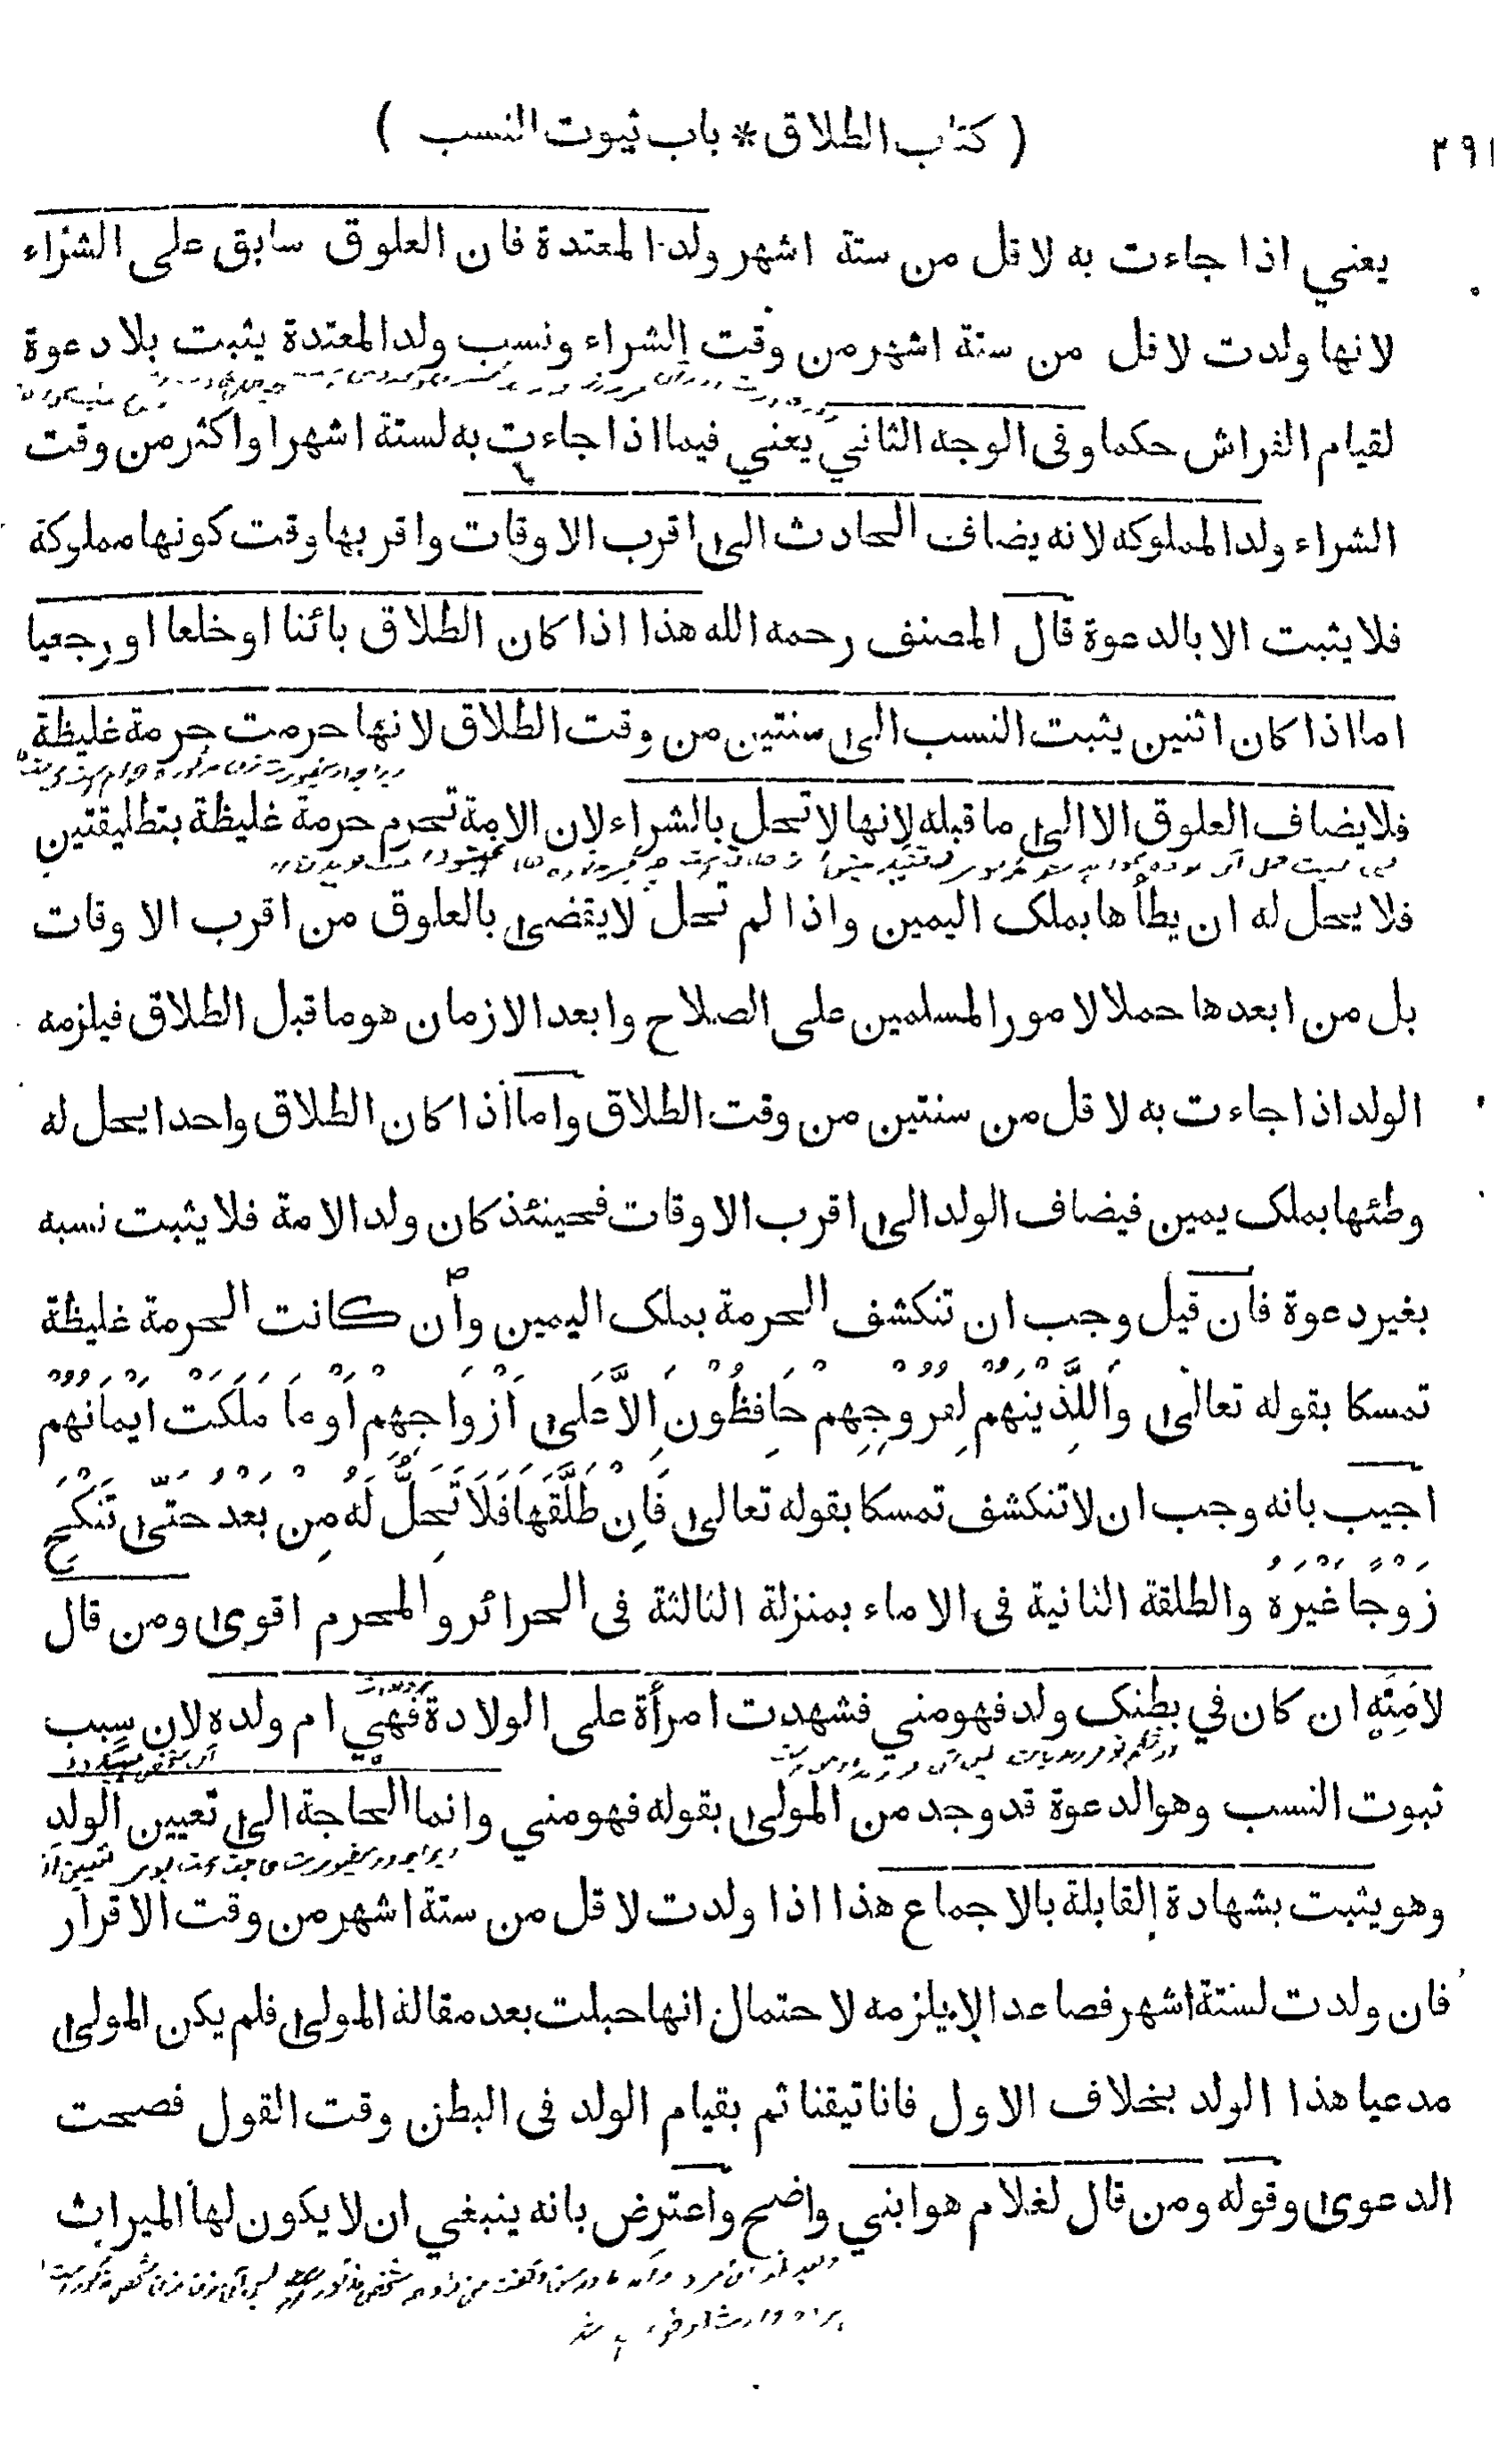 ( كتاب الطلاق * باب ثبوت النسب )
٢٩١
يعني اذا جاءت به لاقل من ستة اشهر ولد المعتدة فان العلوق سابق على الشراء
لانها ولدت لاقل من ستة اشهر من وقت الشراء ونسب ولد المعتدة يثبت بلا دعوة
لقيام الفراش حكما وفى الوجه الثاني يعني فيما اذا جاءت به لستة اشهر او اكثر من وقت
الشراء ولد المملوكه لانه يضاف الحادث الى اقرب الاوقات واقربها وقت كونها مملوكة
فلا يثبت الا بالدعوة قال المصنف رحمه الله هذا اذا كان الطلاق بائنا او خلعا او رجعيا
اما اذا كان اثنين يثبت النسب الى سنتين من وقت الطلاق لانها حرمت حرمة غليظة
فلا يضاف العلوق الا الى ما قبله لانها لا تحل بالشراء لان الامة تحرم حرمة غليظة بتطليقتين
فلا يحل له ان يطأها بملك اليمين واذا لم تحل لا يقضى بالعلوق من اقرب الاوقات
بل من ابعدها حملا لامور المسلمين على الصلاح وابعد الازمان هو ما قبل الطلاق فيلزمه
الولد اذا جاءت به لاقل من سنتين من وقت الطلاق واما اذا كان الطلاق واحدا يحل له
وطئها بملك يمين فيضاف الولد الى اقرب الاوقات فحينئذ كان ولد الامة فلا يثبت نسبه
بغير دعوة فان قيل وجب ان تنكشف الحرمة بملك اليمين وان كانت الحرمة غليظة
تمسكا بقوله تعالى وَالَّذِيْنَهُمْ لِفُرُوْجِهِمْ حَافِظُوْنَ اِلَّا عَلَى اَزْوَاجِهِمْ اَوْ مَا مَلَكَتْ اَيْمَانُهُمْ
اجيب بانه وجب ان لا تنكشف تمسكا بقوله تعالى فَاِنْ طَلَّقَهَا فَلَا تَحِلُّ لَهُ مِنْ بَعْدُ حَتّٰى تَنْكِحَ
زَوْجًا غَيْرَهُ والطلقة الثانية فى الاماء بمنزلة الثالثة فى الحرائر والمحرم اقوى ومن قال
لامته ان كان في بطنك ولد فهو مني فشهدت امرأة على الولادة فهي ام ولده لان سبب
ثبوت النسب وهو الدعوة قد وجد من المولى بقوله فهو مني وانما الحاجة الى تعيين الولد
وهو يثبت بشهادة القابلة بالاجماع هذا اذا ولدت لاقل من ستة اشهر من وقت الاقرار
فان ولدت لستة اشهر فصاعدا لا يلزمه لاحتمال انها حبلت بعد مقالة المولى فلم يكن المولى
مدعيا هذا الولد بخلاف الاول فانا تيقنا ثم بقيام الولد فى البطن وقت القول فصحت
الدعوى وقوله ومن قال لغلام هو ابني واضح واعترض بانه ينبغي ان لا يكون لها الميراث